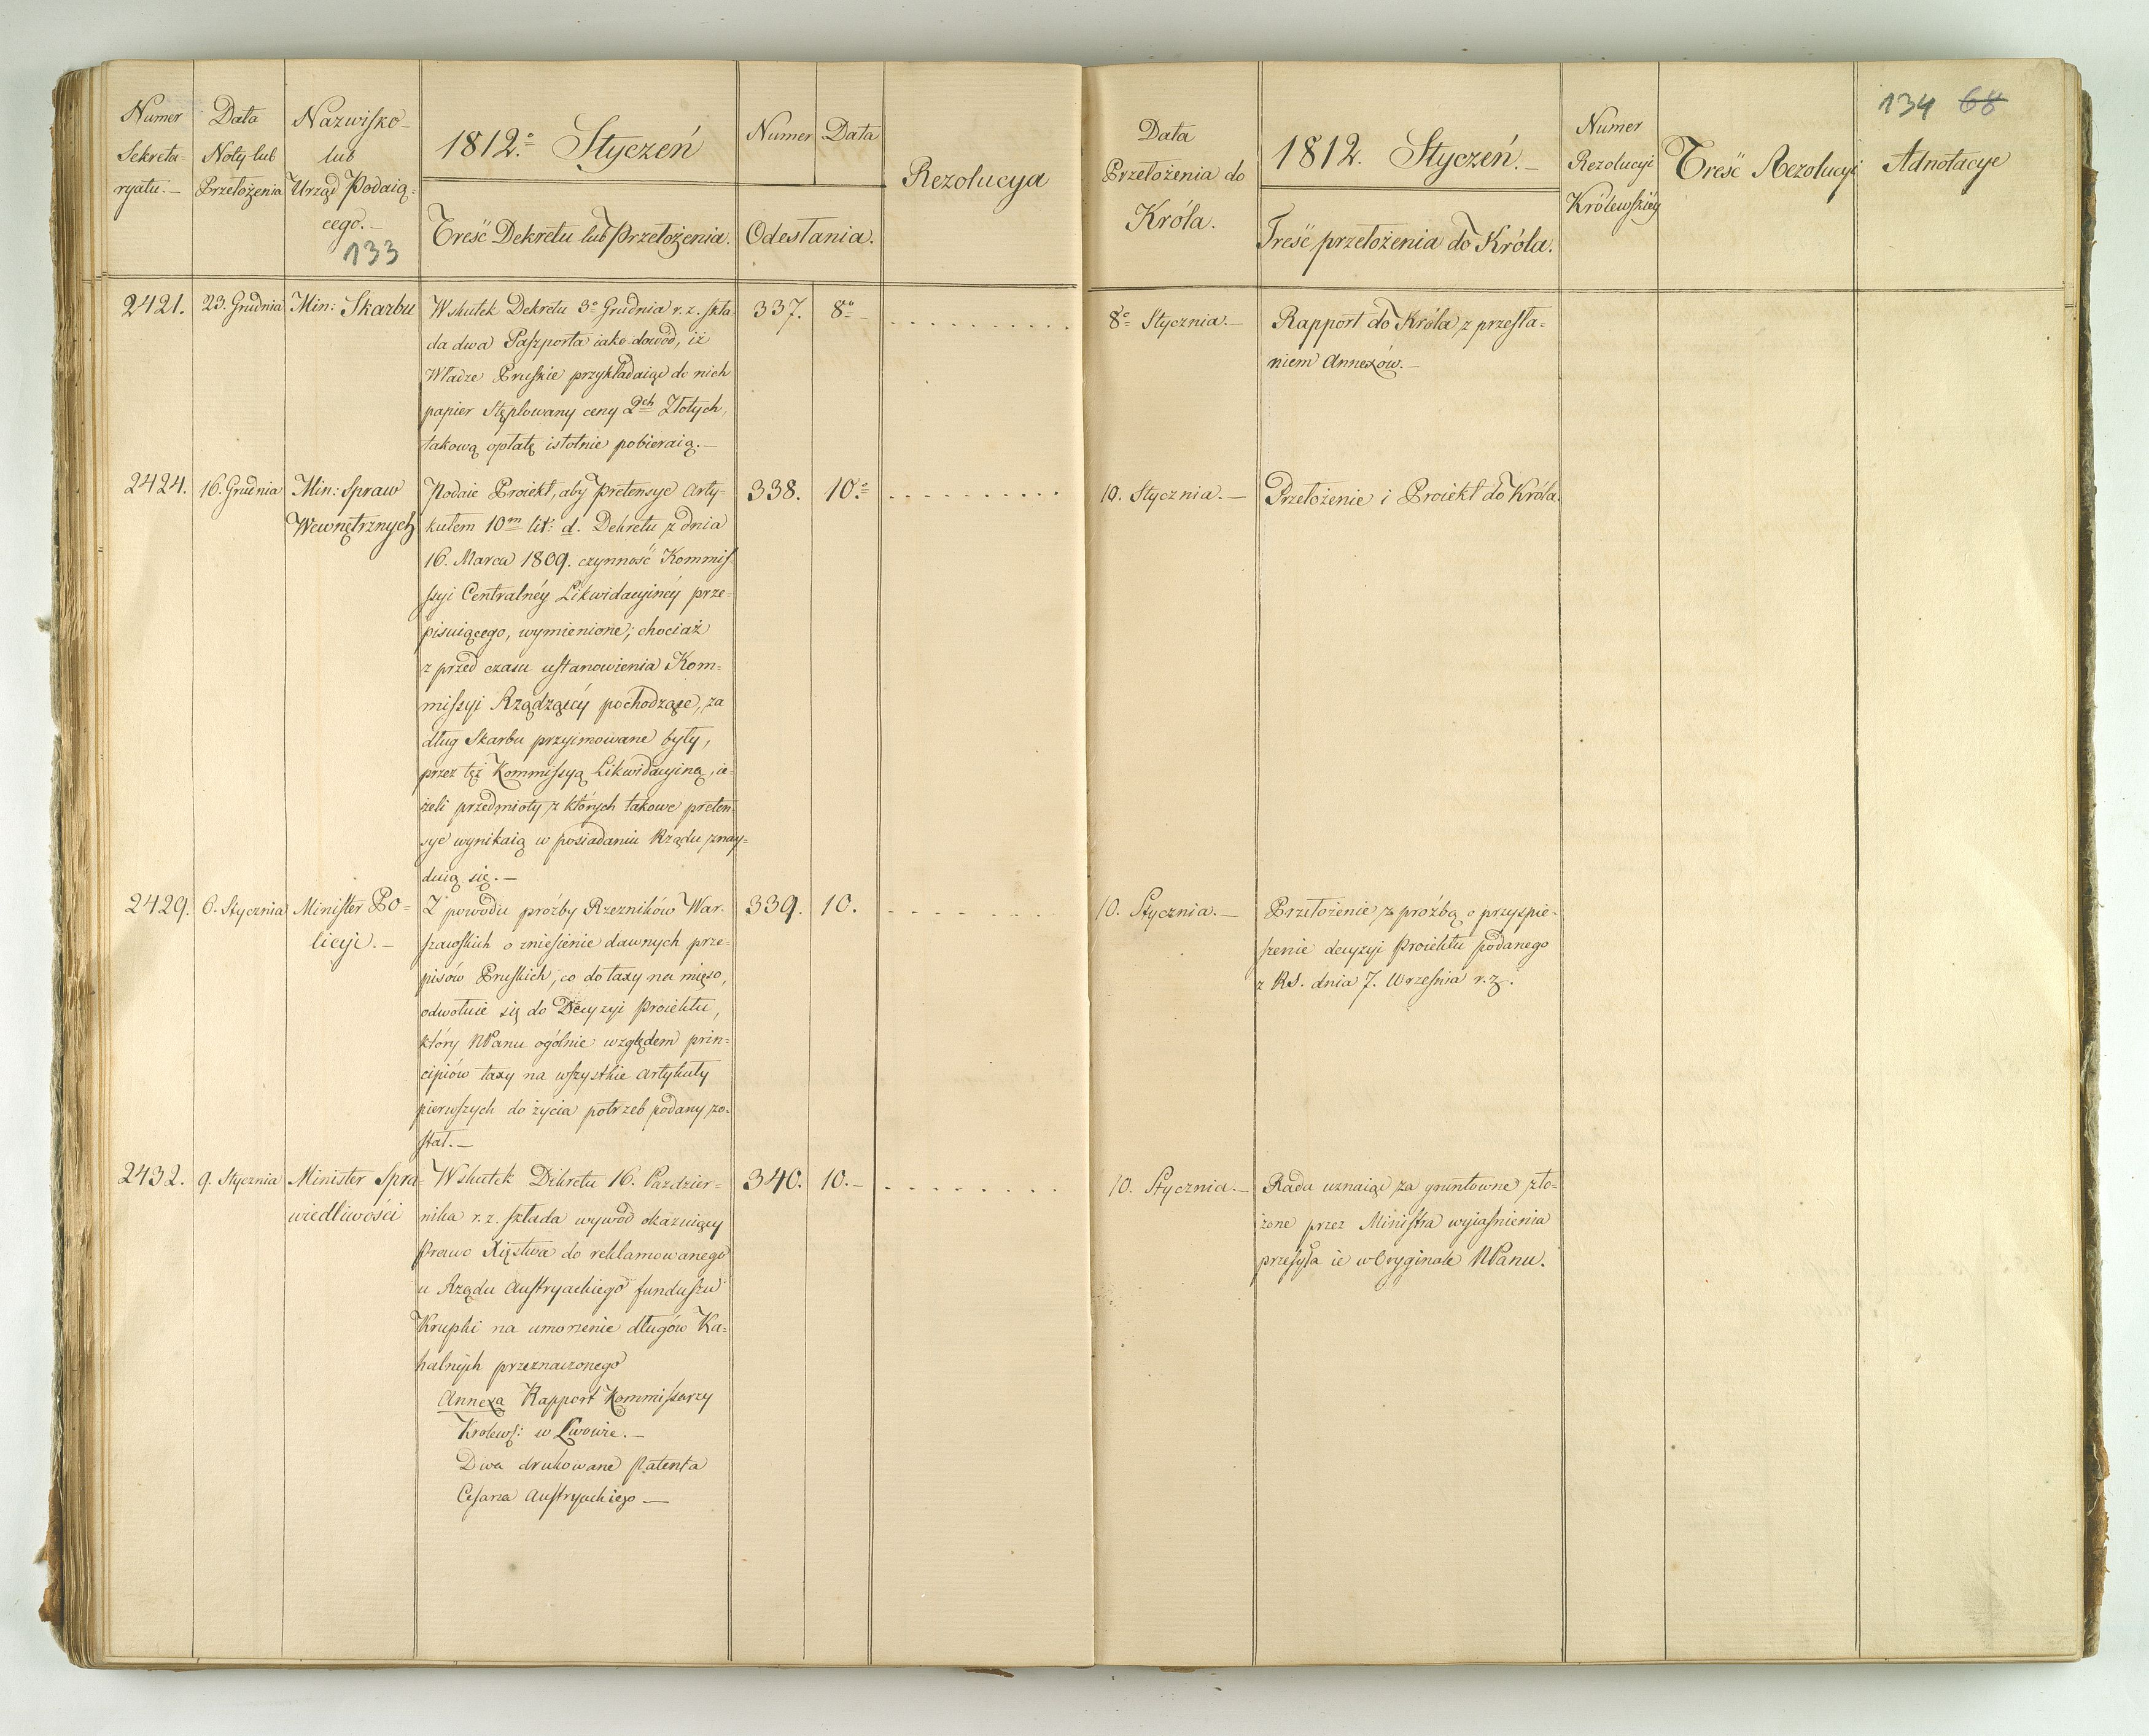 Numer
Sekreta=
ryatu.—
Data
Noty lub
Przełożenia
Nazwisko
lub
Urząd Podaią=
cego.—
133
1812.o Styczeń
Treść Dekretu lub Przełożenia.
Numer Data
Odesłania.
Rezolucya
Data
Przełożenia do
Króla.
1812. Styczeń.—
Treść przełożenia do Króla.
Numer
Rezolucyi
Królewskiéy
Treść Rezolucyi
134 68
Adnotacye
2421.
23. Grudnia
Min: Skarbu
Wskutek Dekretu 3o Grudnia r. z. skła=
da dwa Paszporta iako dowód, iż
Władze Pruskie przykładaiąc do nich
papier Stęplowany ceny 2ch Złotych,
takową opłatę istotnie pobieraią.—
337.
8o
8o Stycznia.—
Rapport do Króla z przesła=
niem Annexów.—
2424.
16. Grudnia
Min: Spraw
Wewnętrznych
Podaie Proiekt, aby pretensye arty=
kułem 10m lit: d. Dekretu z dnia
16. Marca 1809. czynność Kommis=
syi Centralnéy Likwidacyinéy prze=
pisuiącego, wymienione; chociaż
z przed czasu ustanowienia Kom=
missyi Rządzącéy pochodzące, za
dług Skarbu przyimowane były,
przez tęż Kommissyą Likwidacyiną, ie=
żeli przedmioty z których takowe preten=
sye wynikaią w posiadaniu Rządu znay=
duią się.—
338.
10.o
10. Stycznia.—
Przełożenie i Proiekt do Króla.
2429.
6. Stycznia
Minister Po=
licyi.—
Z powodu prożby Rzezników War=
szawskich o zniesienie dawnych prze=
pisów Pruskich, co do taxy na mięso,
odwołuie się do Decyzyi Proiektu,
który NPanu ogólnie względem prin=
cipiów taxy na wszystkie artykuły
pierwszych do życia potrzeb podany zo=
stał.—
339.
10.
10. Stycznia.—
Przełożenie z prożbą o przyspie=
szenie decyzyi Proiektu podanego
z RS. dnia 7. Września r. z.
2432.
9. Stycznia
Minister Spra=
wiedliwości
Wskutek Dekretu 16. Pazdzier=
nika r. z. składa wywód okazuiący
prawo Xięstwa do reklamowanego
u Rządu Austryackiego funduszu
Krupki na umorzenie długów Ka=
halnych przeznaczonego
Annexa Rapport Kommissarzy
Królews: w Lwowie.—
Dwa drukowane Patenta
Cesarza Austryackiego—
340.
10.—
10. Stycznia.—
Rada uznaiąc za gruntowne zło=
żone przez Ministra wyiaśnienia
przesyła ie w Oryginale NPanu.